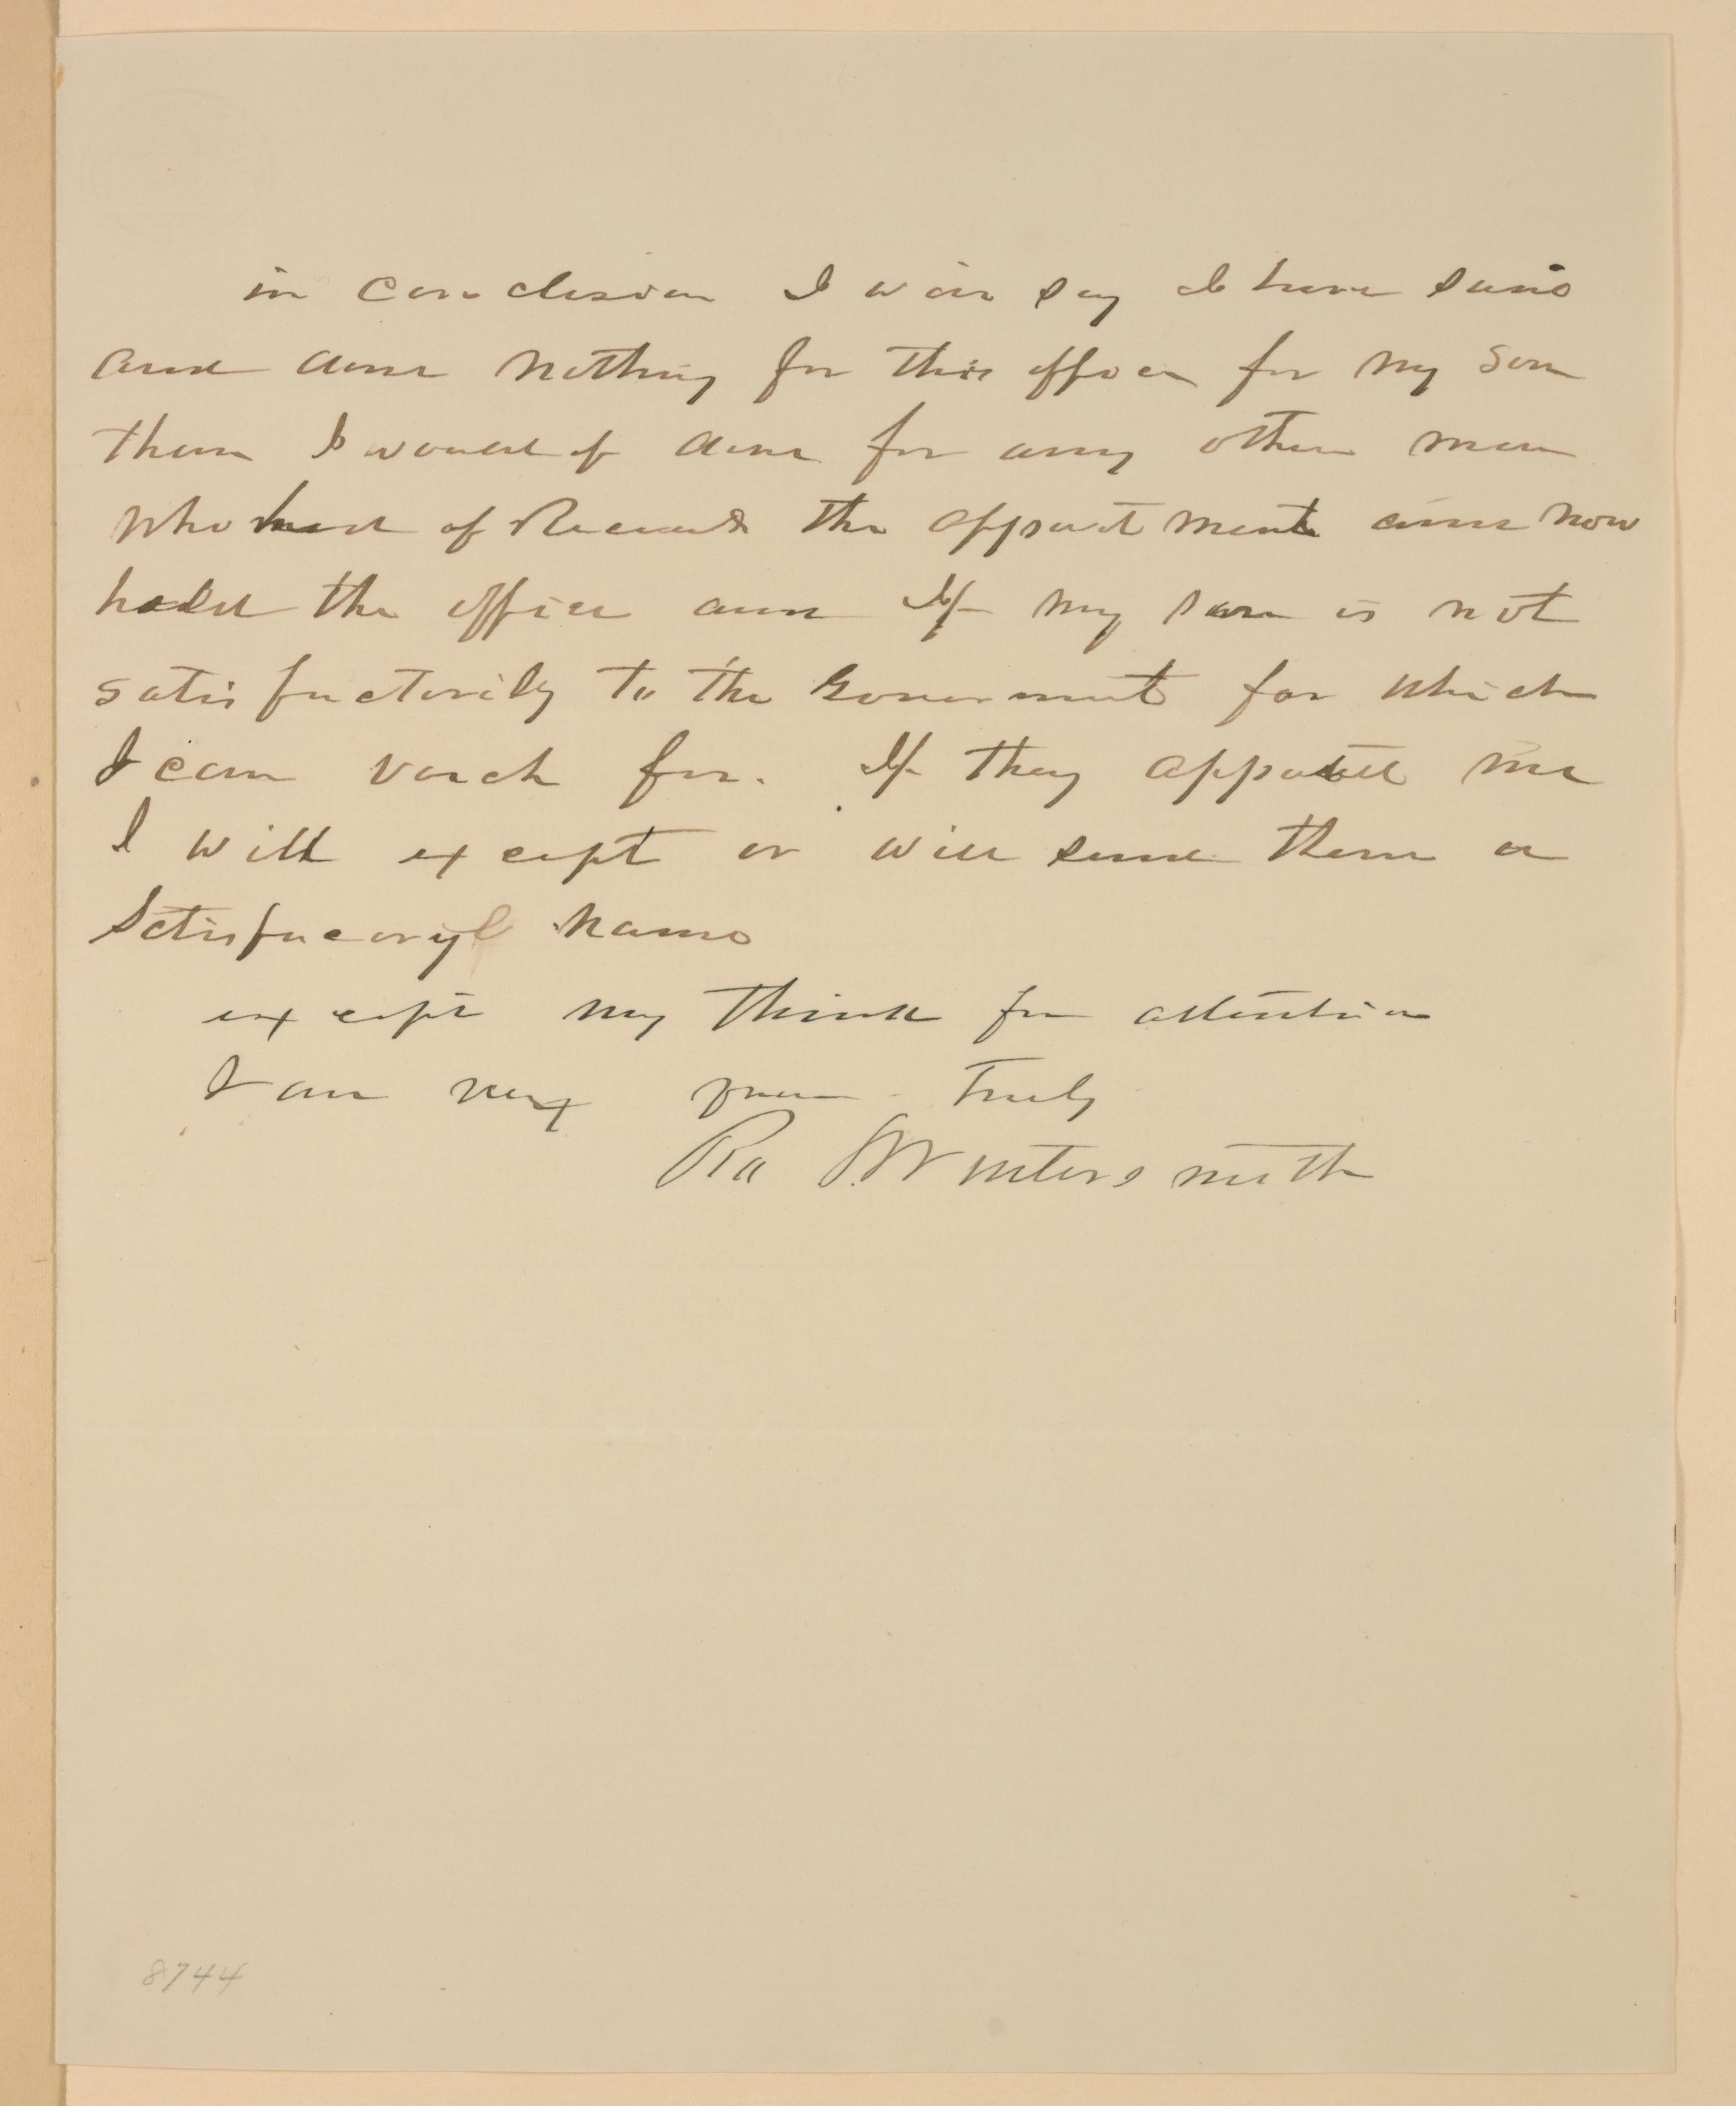 in conclusion I will say I have said
and done nothing for this officer for my son
then I would of done for any other man
who had of Received the appointment and now
hold the office and If my son is not
satisfactorily to the Government for which
I can vouch for. If they appoint me
I will except or will send them a
Satisfacoryl name
except my think for attention
I am very yours Truly
RC Wintersmith
8744